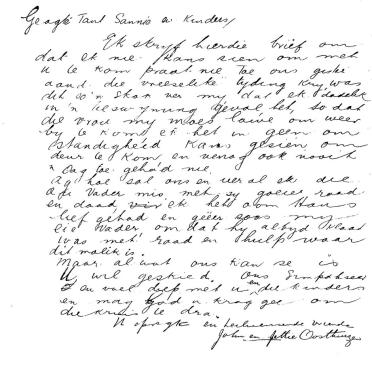 Geagte Tant Sannie en Kinders,
Ek skryf hierdie brief om
dat ek nie kans sien om met
u te kom praat nie. Toe ons
aand die vreeselike tyding kry was
dit so'n skok ver my dat ek dadelik
in 'n geval het, so dat
die vrou my moes om weer
by te kom. Ek het in geen om
standigheid kans gesien om
deur te kom en verag ook nooit
'n gehad nie.
Ag hoe sal ons en veral ek die
ou Vader mis met sy goeie raad
en daad. Ek het hom
lief gehad en geëer soos my
eie Vader om dat hy altyd klaar
was met raad en hulp waar
dit moelik is.
Maar al wat ons kan sê is
U wil geskied. Ons Simpatiseer
en voel diep met u en die kinders
en mag God u krag gee om
die kruis te dra.
U opregte en vriende
John en Oosthuizen